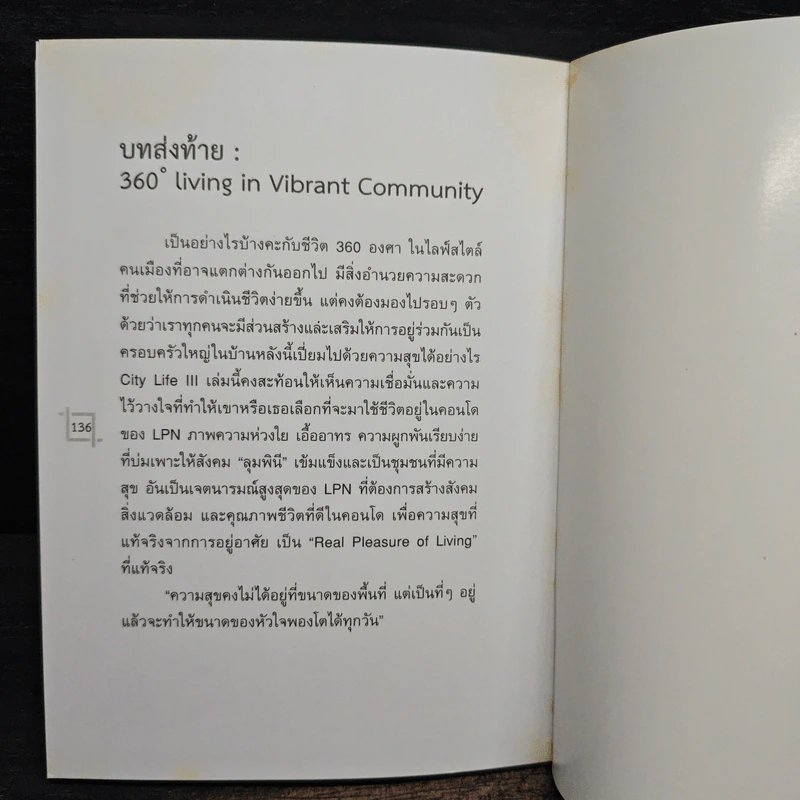 บทส่งท้าย :
360° living in Vibrant Community
เป็นอย่างไรบ้างคะกับชีวิต 360 องศา ในไลฟ์สไตล์
คนเมืองที่อาจแตกต่างกันออกไป มีสิ่งอำนวยความสะดวก
ที่ช่วยให้การดำเนินชีวิตง่ายขึ้น แต่คงต้องมองไปรอบๆ ตัว
ด้วยว่าเราทุกคนจะมีส่วนสร้างและเสริมให้การอยู่ร่วมกันเป็น
ครอบครัวใหญ่ในบ้านหลังนี้เปี่ยมไปด้วยความสุขได้อย่างไร
City Life III เล่มนี้คงสะท้อนให้เห็นความเชื่อมั่นและความ
ไว้วางใจที่ทำให้เขาหรือเธอเลือกที่จะมาใช้ชีวิตอยู่ในคอนโด
136
ของ LPN ภาพความห่วงใย เอื้ออาทร ความผูกพันเรียบง่าย
ที่บ่มเพาะให้สังคม “ลุมพินี” เข้มแข็งและเป็นชุมชนที่มีความ
สุข อันเป็นเจตนารมณ์สูงสุดของ LPN ที่ต้องการสร้างสังคม
สิ่งแวดล้อม และคุณภาพชีวิตที่ดีในคอนโด เพื่อความสุขที่
แท้จริงจากการอยู่อาศัย เป็น “Real Pleasure of Living”
ที่แท้จริง
“ความสุขคงไม่ได้อยู่ที่ขนาดของพื้นที่ แต่เป็นที่ๆ อยู่
แล้วจะทำให้ขนาดของหัวใจพองโตได้ทุกวัน”